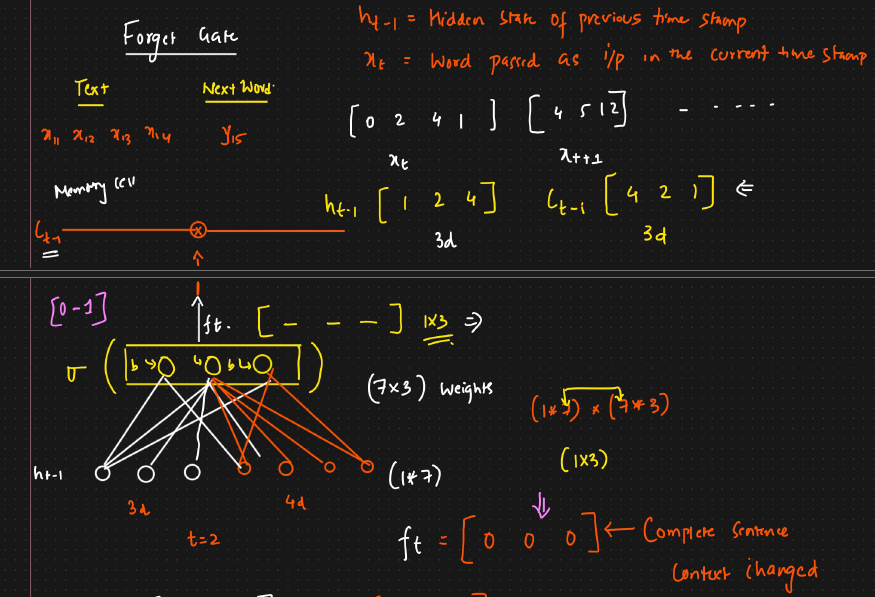 Forget Gate
h t-1 = Hidden State of previous time stamp
x t = Word passed as i/p in the current time stamp
Text Next Word
x11 x12 x13 x14 y15
[0 2 4 1] [4 5 1 2] - - - - -
x t x t+1
Memory Cell
h t-1 [1 2 4] C t-1 [4 2 1] ⇐
3d 3d
C t-1 ⊗
[0-1]
ft. [- - -] 1x3 ⇒
σ ( b→ b→ b→ )
(7x3) Weights
(1*7) x (7*3)
(1x3)
h t-1 (1*7)
3d 4d
t=2
ft = [0 0 0] ← Complete sentence
Context changed